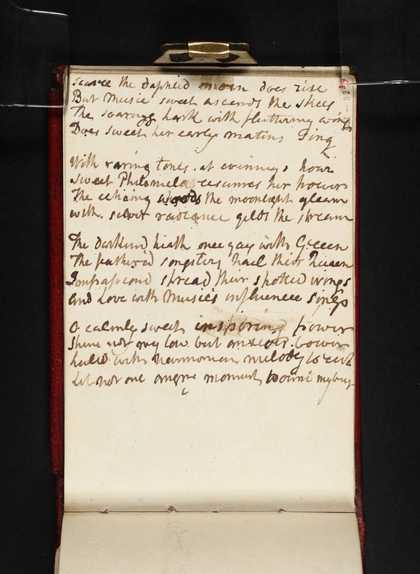 Scarce the dapheid morn does rise
But Music sweet ascends the skies
The soaring lark with fluttering wings
Does sweet her early matins Sing
With varing tones at evinings hour
Sweet Philomela resumes her powers
The echoing woods the moonlight gleam
with silver radeance gilds the stream
The darkend heath once gay with Green
The feathered songsters hail their Queen
spread their spotted wings
and Love with Musics influence Sings
O calmly sweet inspiring power
Shine not my low but anxious bower
with harmonian melody
Let not one moment